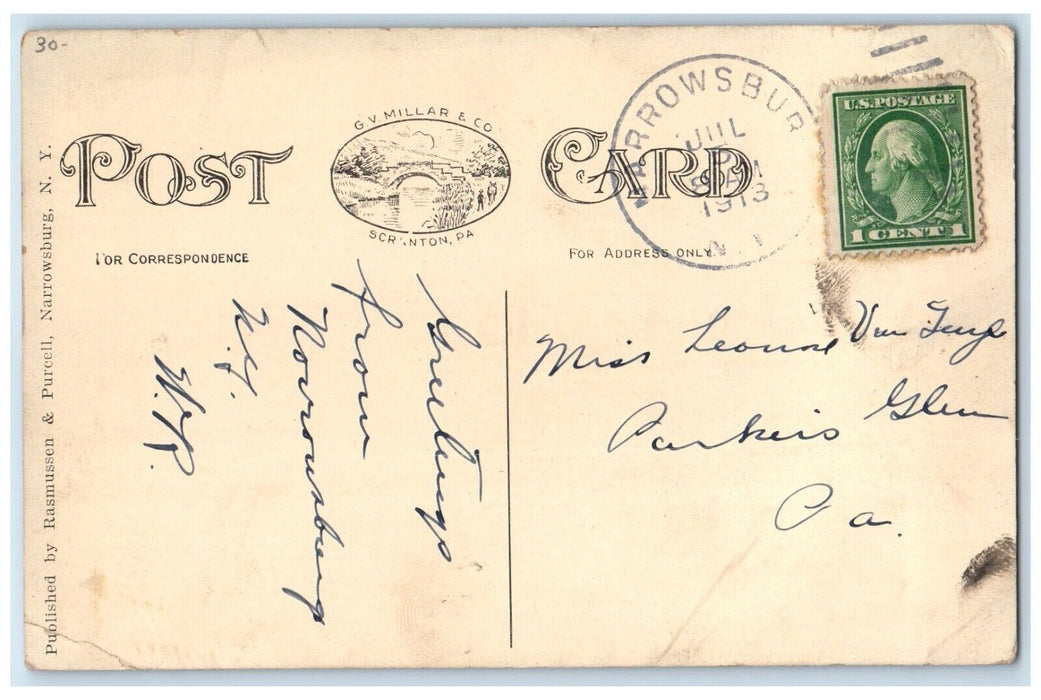 30-
POST CARD
G.V. MILLAR & CO
SCRANTON, PA
FOR CORRESPONDENCE
FOR ADDRESS ONLY.
NARROWSBUR
JUL
8 AM
1913
N Y
U.S. POSTAGE
1 CENT 1
Published by Rasmussen & Purcell, Narrowsburg, N. Y.
Greetings
from
Narrowsburg
N.Y.
Miss
Parkers Glen
Pa.